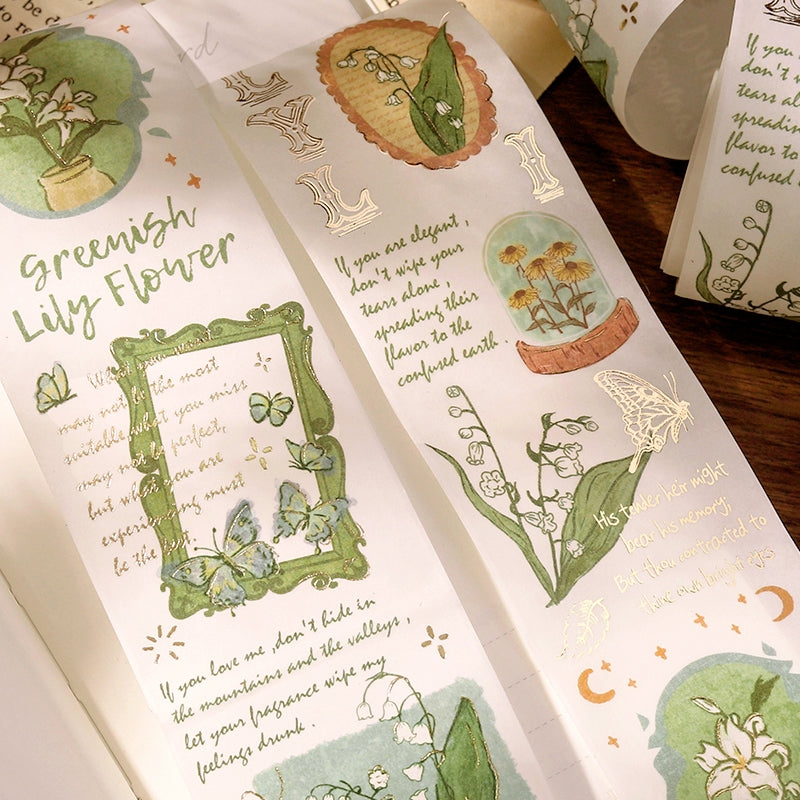 Greenish
Lily Flower
What you want
may not be the most
suitable, what you miss
may not be perfect,
but what you are
experiencing must
be the
If you love me ,don't hide in
the mountains and the valleys ,
let your fragrance wipe my
feelings drunk .
LYL I
If you are elegant ,
don't wipe your
tears alone ,
spreading their
flavor to the
confused earth .
His tender heir might
bear his memory:
But thou contracted to
thine own bright eyes
If you
don't
tears al
spreadin
flavor to
confused